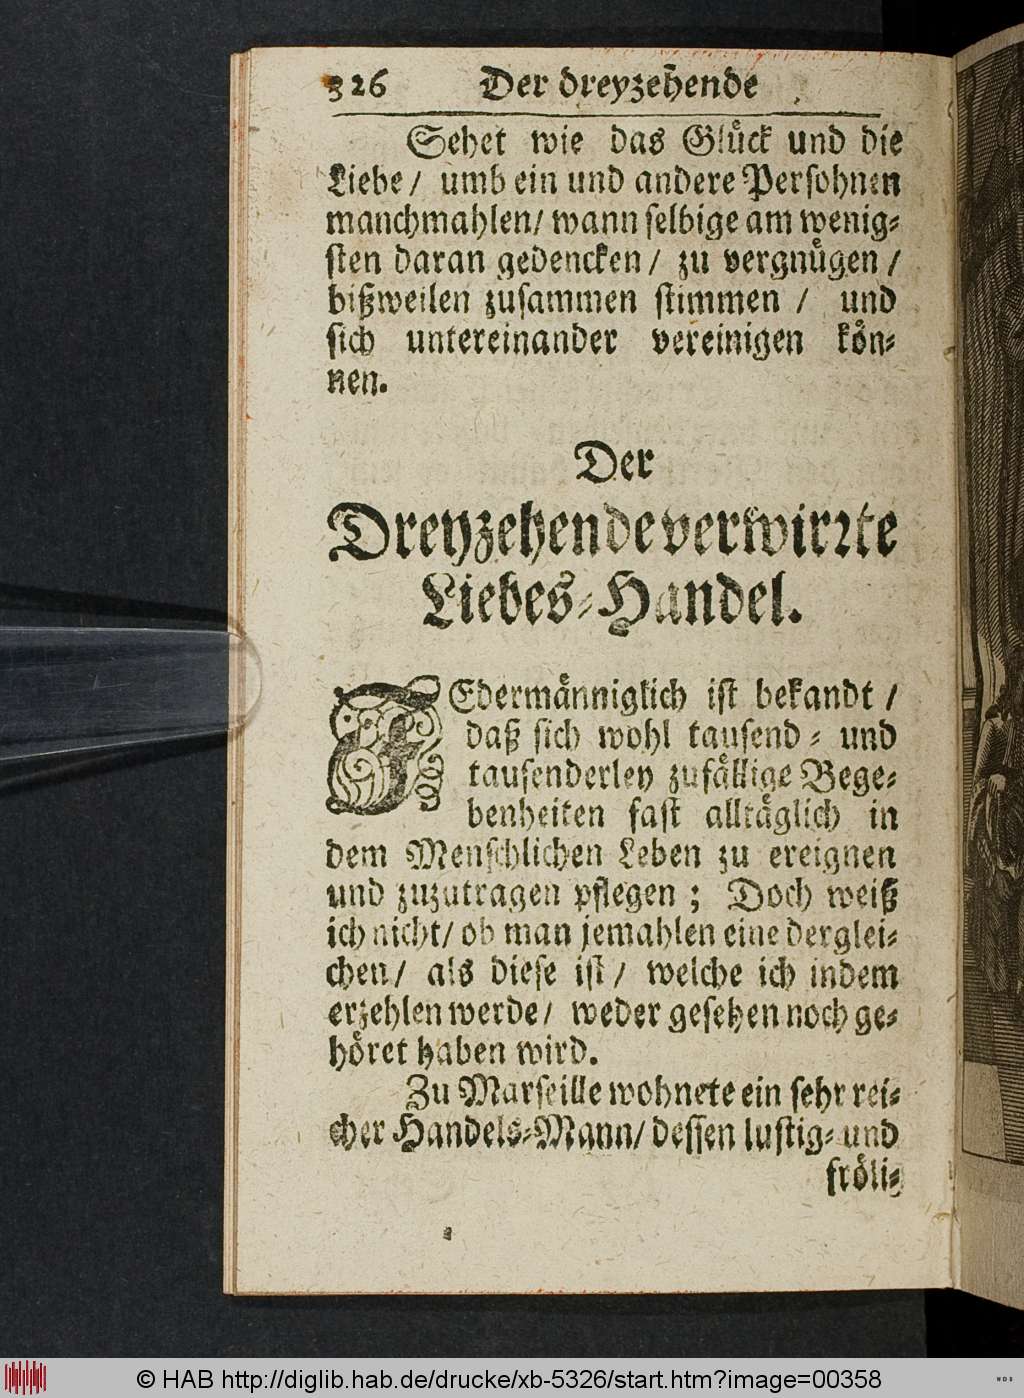 326 Der dreyzehende
Sehet wie das Glück und die
Liebe / umb ein und andere Persohnen
manchmahlen / wann selbige am wenig-
sten daran gedencken / zu vergnügen /
bißweilen zusammen stimmen / und
sich untereinander vereinigen kön-
nen.
Der
Dreyzehende verwirrte
Liebes-Handel.
JEdermänniglich ist bekandt /
daß sich wohl tausend- und
tausenderley zufällige Bege-
benheiten fast alltäglich in
dem Menschlichen Leben zu ereignen
und zuzutragen pflegen ; Doch weiß
ich nicht / ob man jemahlen eine derglei-
chen / als diese ist / welche ich indem
erzehlen werde / weder gesehen noch ge-
höret haben wird.
Zu Marseille wohnete ein sehr rei-
cher Handels-Mann / dessen lustig- und
fröli-
© HAB http://diglib.hab.de/drucke/xb-5326/start.htm?image=00358
WDB